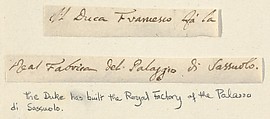 Il Duca Francesco fà la
Real Fabrica del Palazzo di Sassuolo.
the Duke has built the Royal Factory of the Palazzo
di Sassuolo.